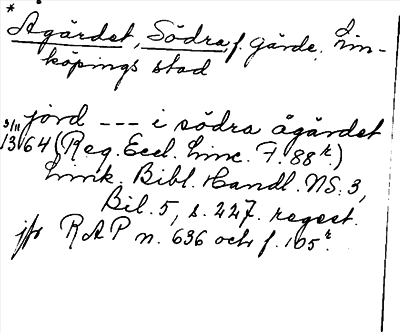 * Ågärdet, Södra, f. gärde, Lin-
köpings stad
jord --- i södra ågärdet
3/11 1364 (Reg. Eccl. Linc. F. 88r.)
Link. Bibl. Handl. NS. 3,
Bil. 5, s. 227. regest.
jfr RAP n. 636 och f. 105r.